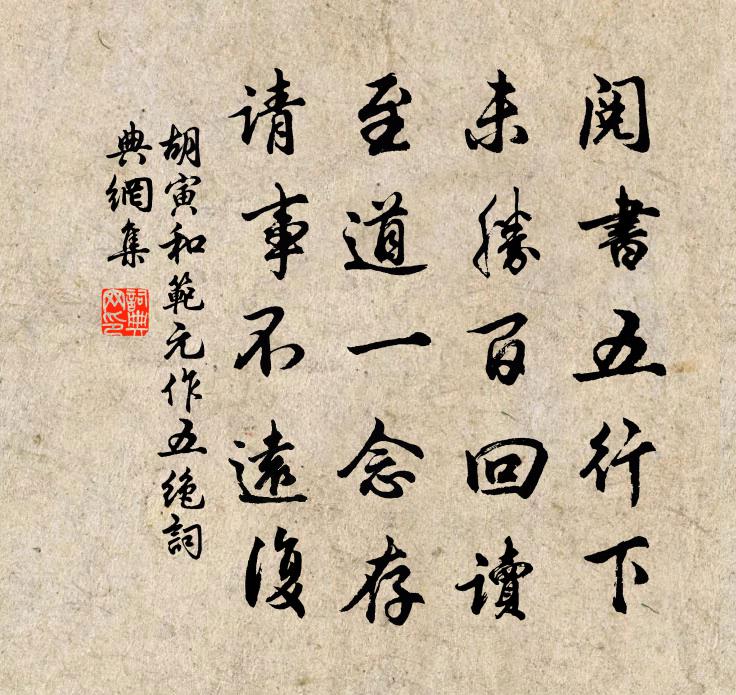 閱書五行下
未勝百回讀
至道一念存
请事不遠復
胡寅和範元作五絶詞
典網集
詞典
网印